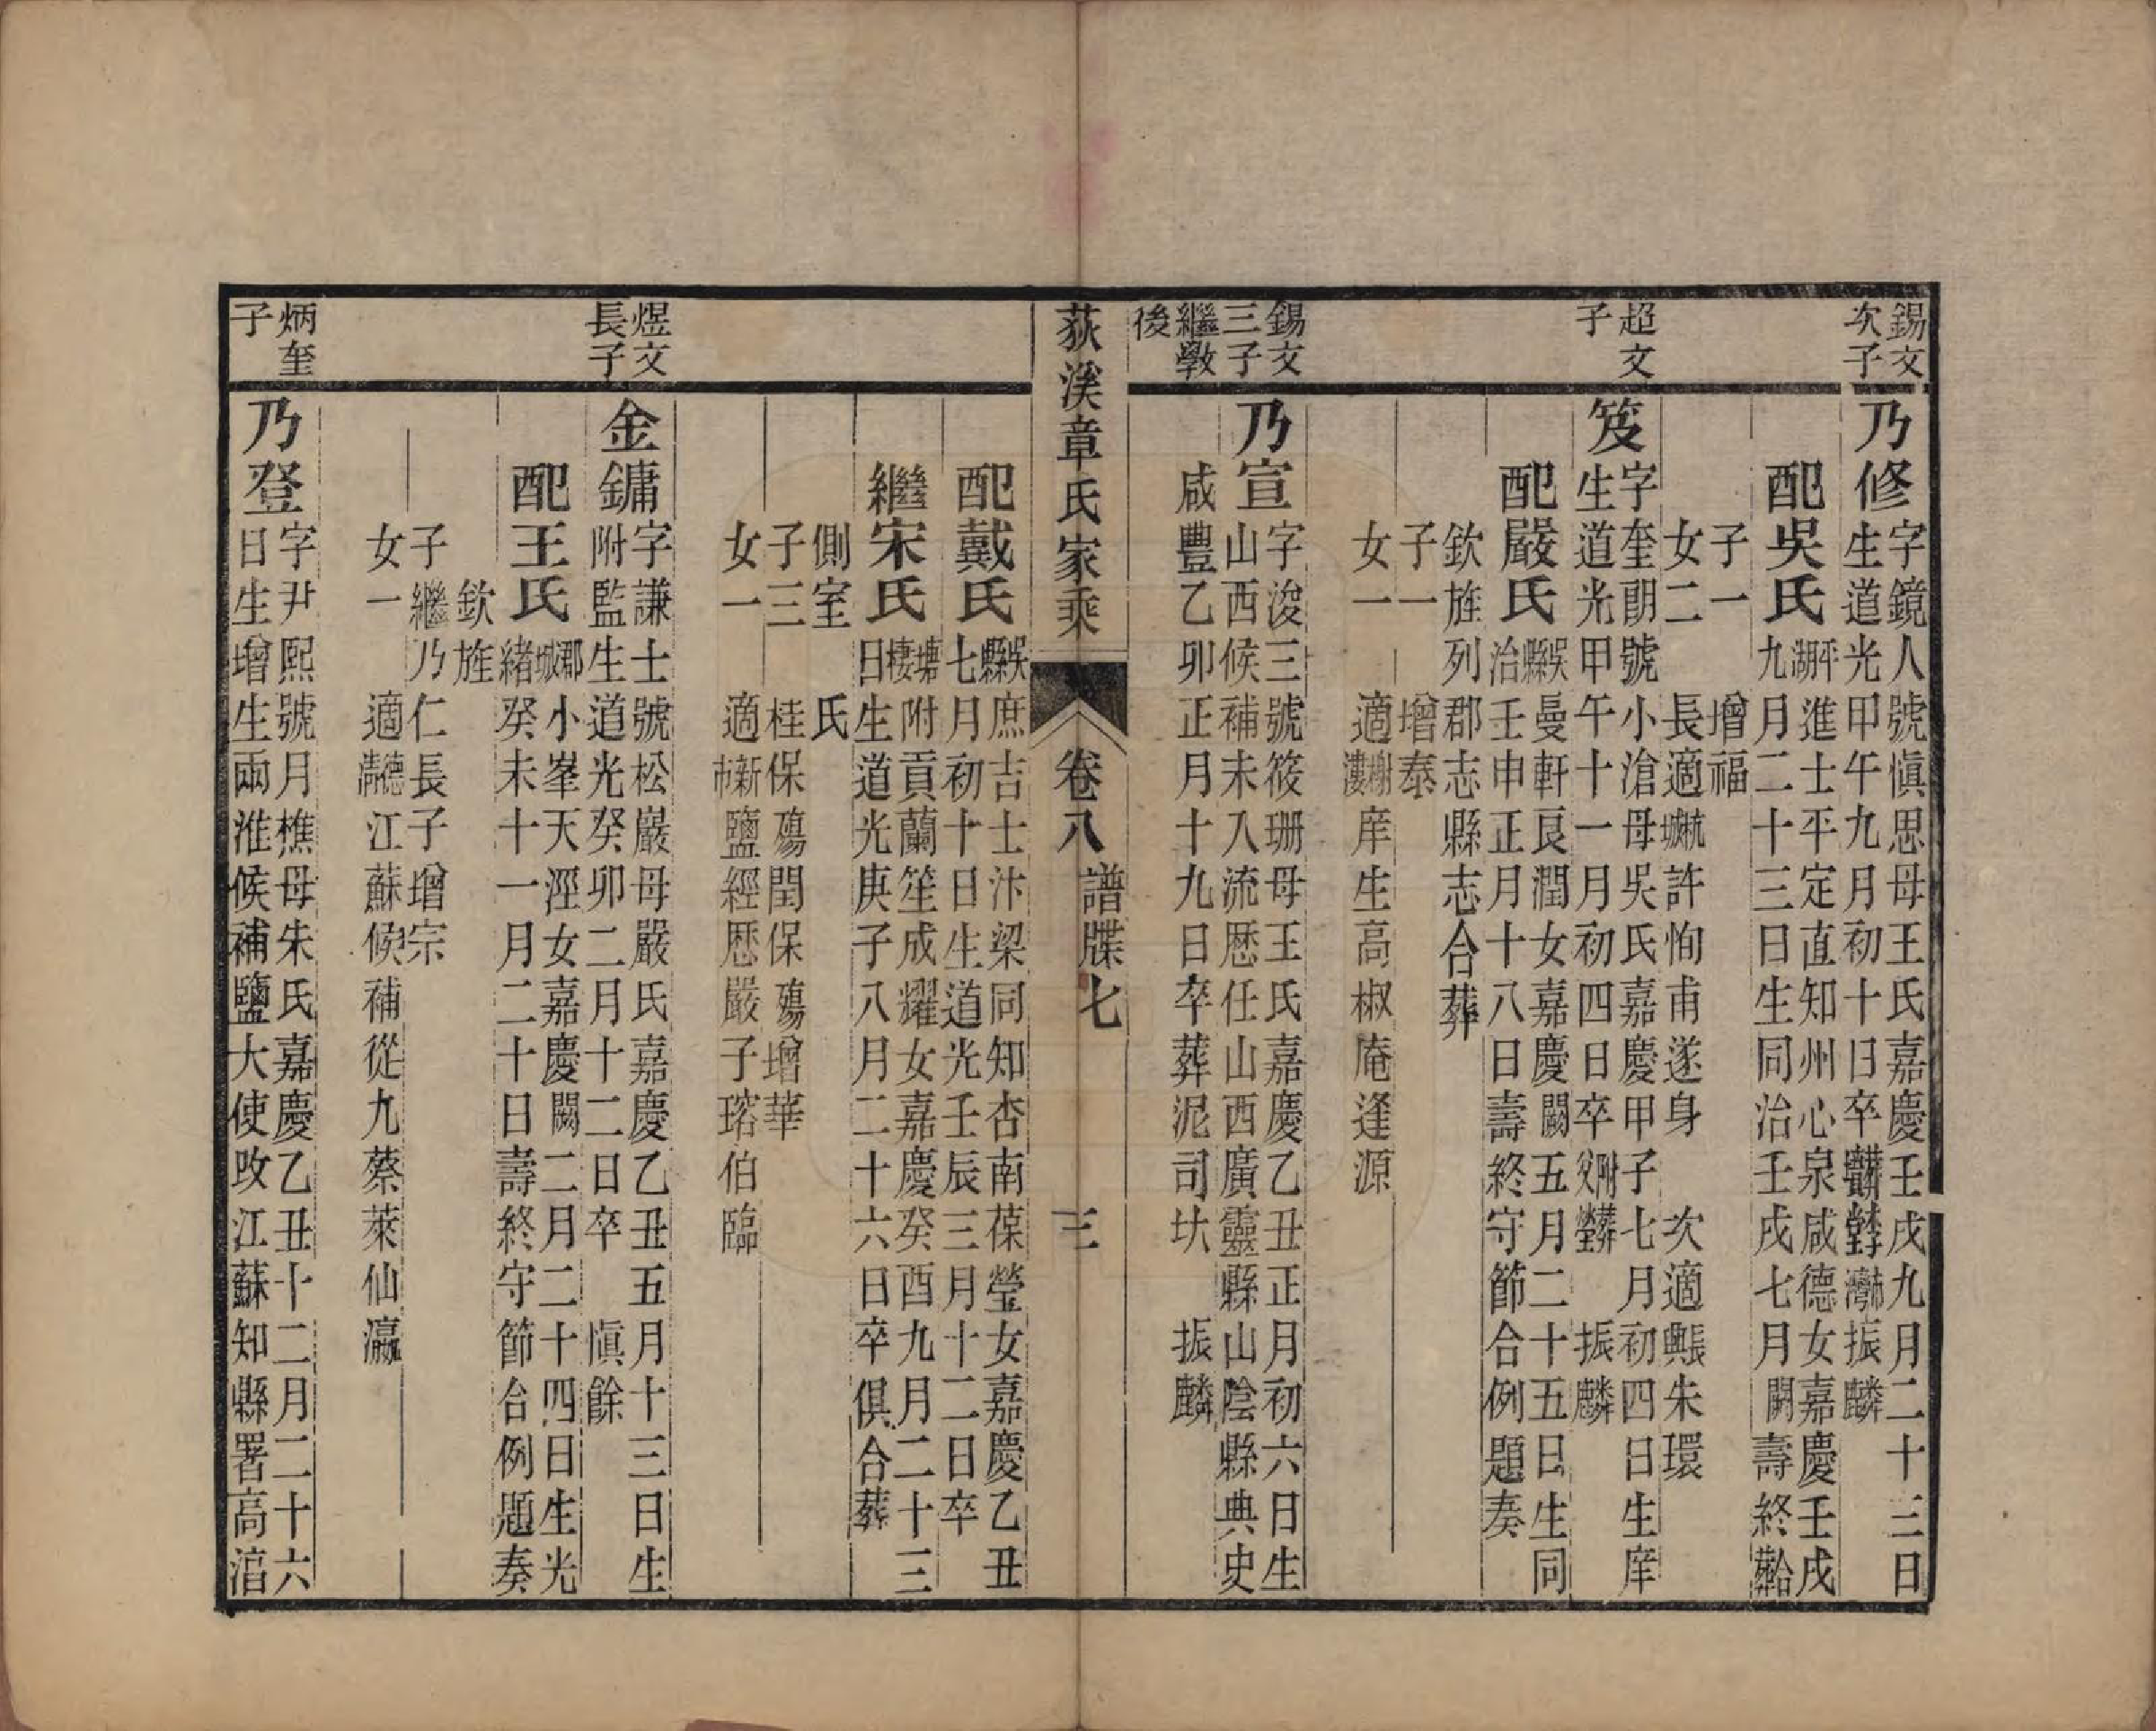 錫文
次子
乃修
字鏡人號愼思母王氏嘉慶壬戌九月二十三日
生道光甲午九月初十日卒 振麟
配吳氏
平湖進士平定直知州心泉咸德女嘉慶壬戌
九月二十三日生同治壬戌七月闕壽終
子一 增福
女二 長適許恂甫遂身 次適朱環
超文
子
笈
字奎朗號小滄母吳氏嘉慶甲子七月初四日生庠
生道光甲午十一月初四日卒附父塋葬 振麟
配嚴氏
吳縣曼軒良潤女嘉慶闕五月二十五日生同
治壬申正月十八日壽終守節合例題奏
欽旌列郡志縣志合葬
子一 增泰
女一 適庠生高椒庵逢源
錫文
三子
繼斅
後
乃宣
字浚三號筱珊母王氏嘉慶乙丑正月初六日生
山西候補未入流歷任山西廣靈縣山陰縣典史
咸豐乙卯正月十九日卒葬泥司圤 振麟
荻溪章氏家乘 卷八 譜牒七 三
配戴氏
吳縣庶吉士汴梁同知杏南葆瑩女嘉慶乙丑
七月初十日生道光壬辰三月十二日卒
繼宋氏
塘棲附貢蘭笙成耀女嘉慶癸酉九月二十三
日生道光庚子八月二十六日卒俱合葬
側室 氏
子三 桂保殤閏保殤增華
女一 適新市鹽經歷嚴子瑢伯臨
煜文
長子
金鏞
字謙士號松巖母嚴氏嘉慶乙丑五月十三日生
附監生道光癸卯二月十二日卒 愼餘
配王氏
郡城小峯天涇女嘉慶闕二月二十四日生光
緒癸未十一月二十日壽終守節合例題奏
欽旌
子繼乃仁長子增宗
女一 適德清江蘇候補從九蔡萊仙瀛
炳奎
子
乃登
字尹熙號月樵母朱氏嘉慶乙丑十二月二十六
日生增生兩淮候補鹽大使改江蘇知縣署高淯